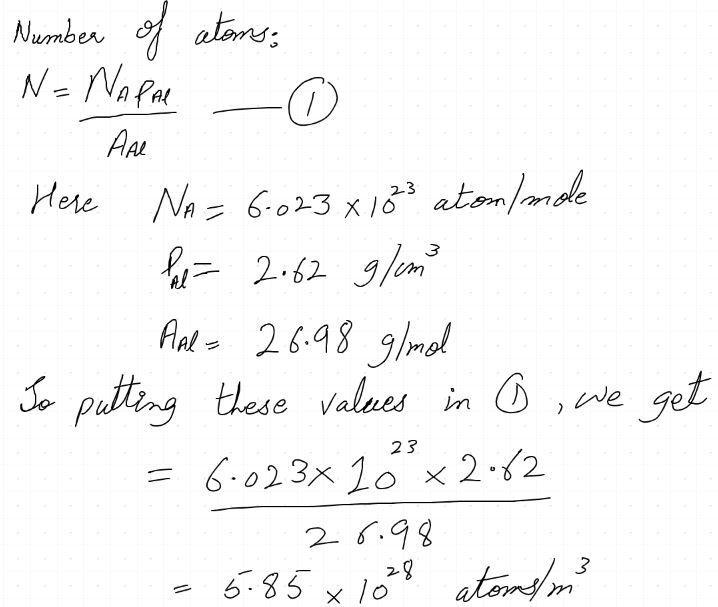 Number of atoms:
N = N_A ρ_Al / A_Al —— ①
Here N_A = 6.023 × 10^23 atom/mole
ρ_Al = 2.62 g/cm^3
A_Al = 26.98 g/mol
So putting these values in ①, we get
= 6.023 × 10^23 × 2.62 / 26.98
= 5.85 × 10^28 atoms/m^3